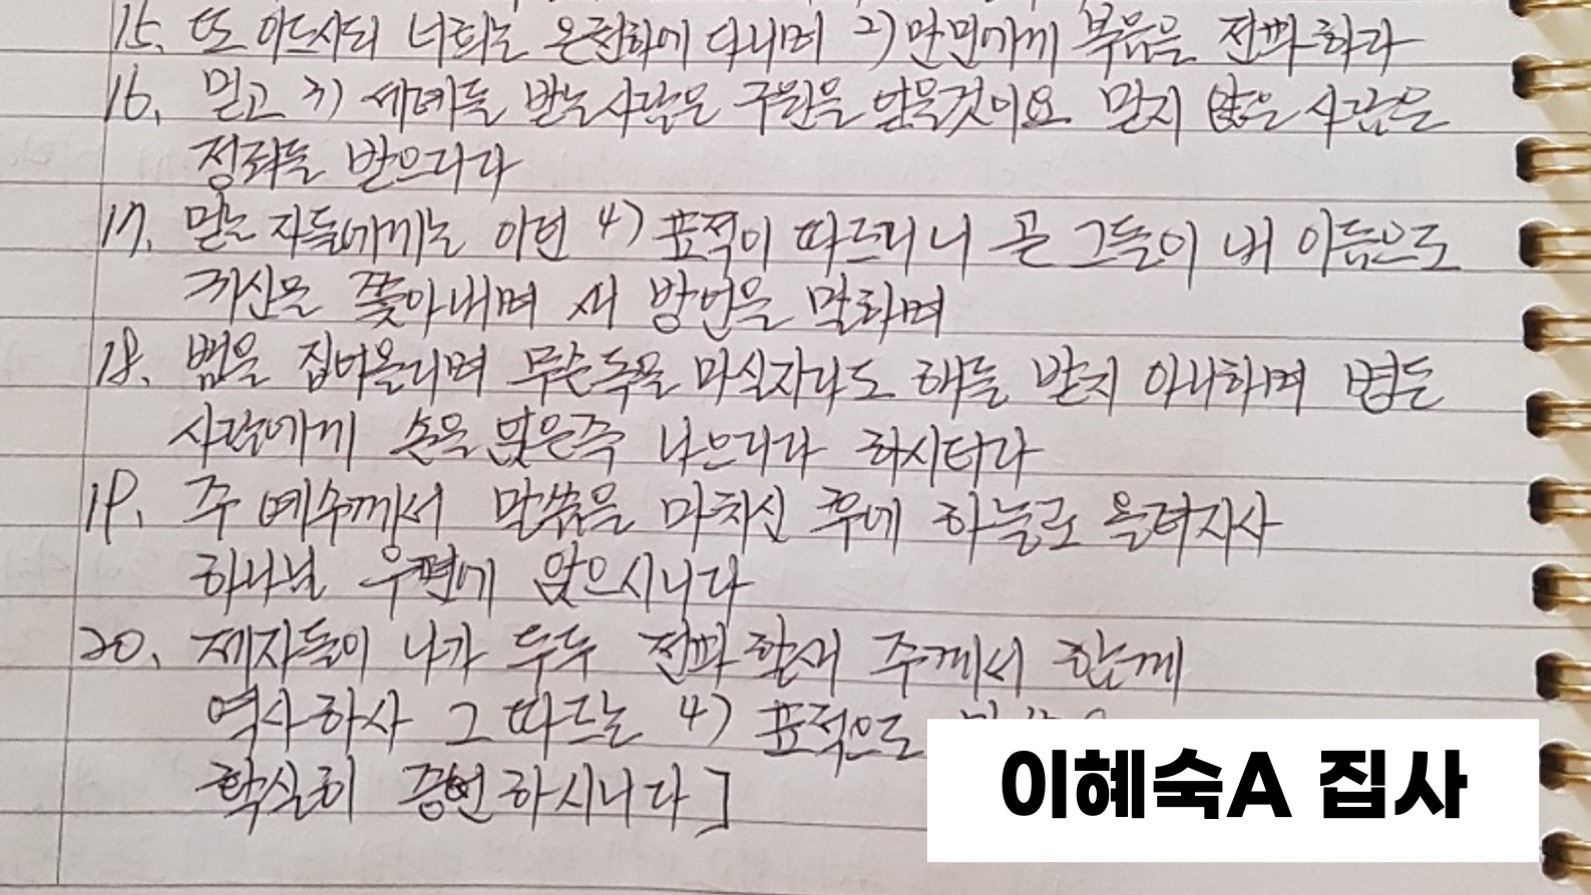 15. 또 이르시되 너희는 온천하에 다니며 2) 만민에게 복음을 전파하라
16. 믿고 3) 세례를 받는 사람은 구원을 얻을것이요 믿지 않은 사람은
정죄를 받으리라
17. 믿는 자들에게는 이런 4) 표적이 따르리니 곧 그들이 내 이름으로
귀신을 쫓아내며 새 방언을 말하며
18. 뱀을 집어올리며 무슨독을 마실지라도 해를 받지 아니하며 병든
사람에게 손을 얹은즉 나으리라 하시더라
19. 주 예수께서 말씀을 마치신 후에 하늘로 올려지사
하나님 우편에 앉으시니라
20. 제자들이 나가 두루 전파할새 주께서 함께
역사하사 그 따르는 4) 표적으로
확실히 증언하시니라]
이혜숙A 집사